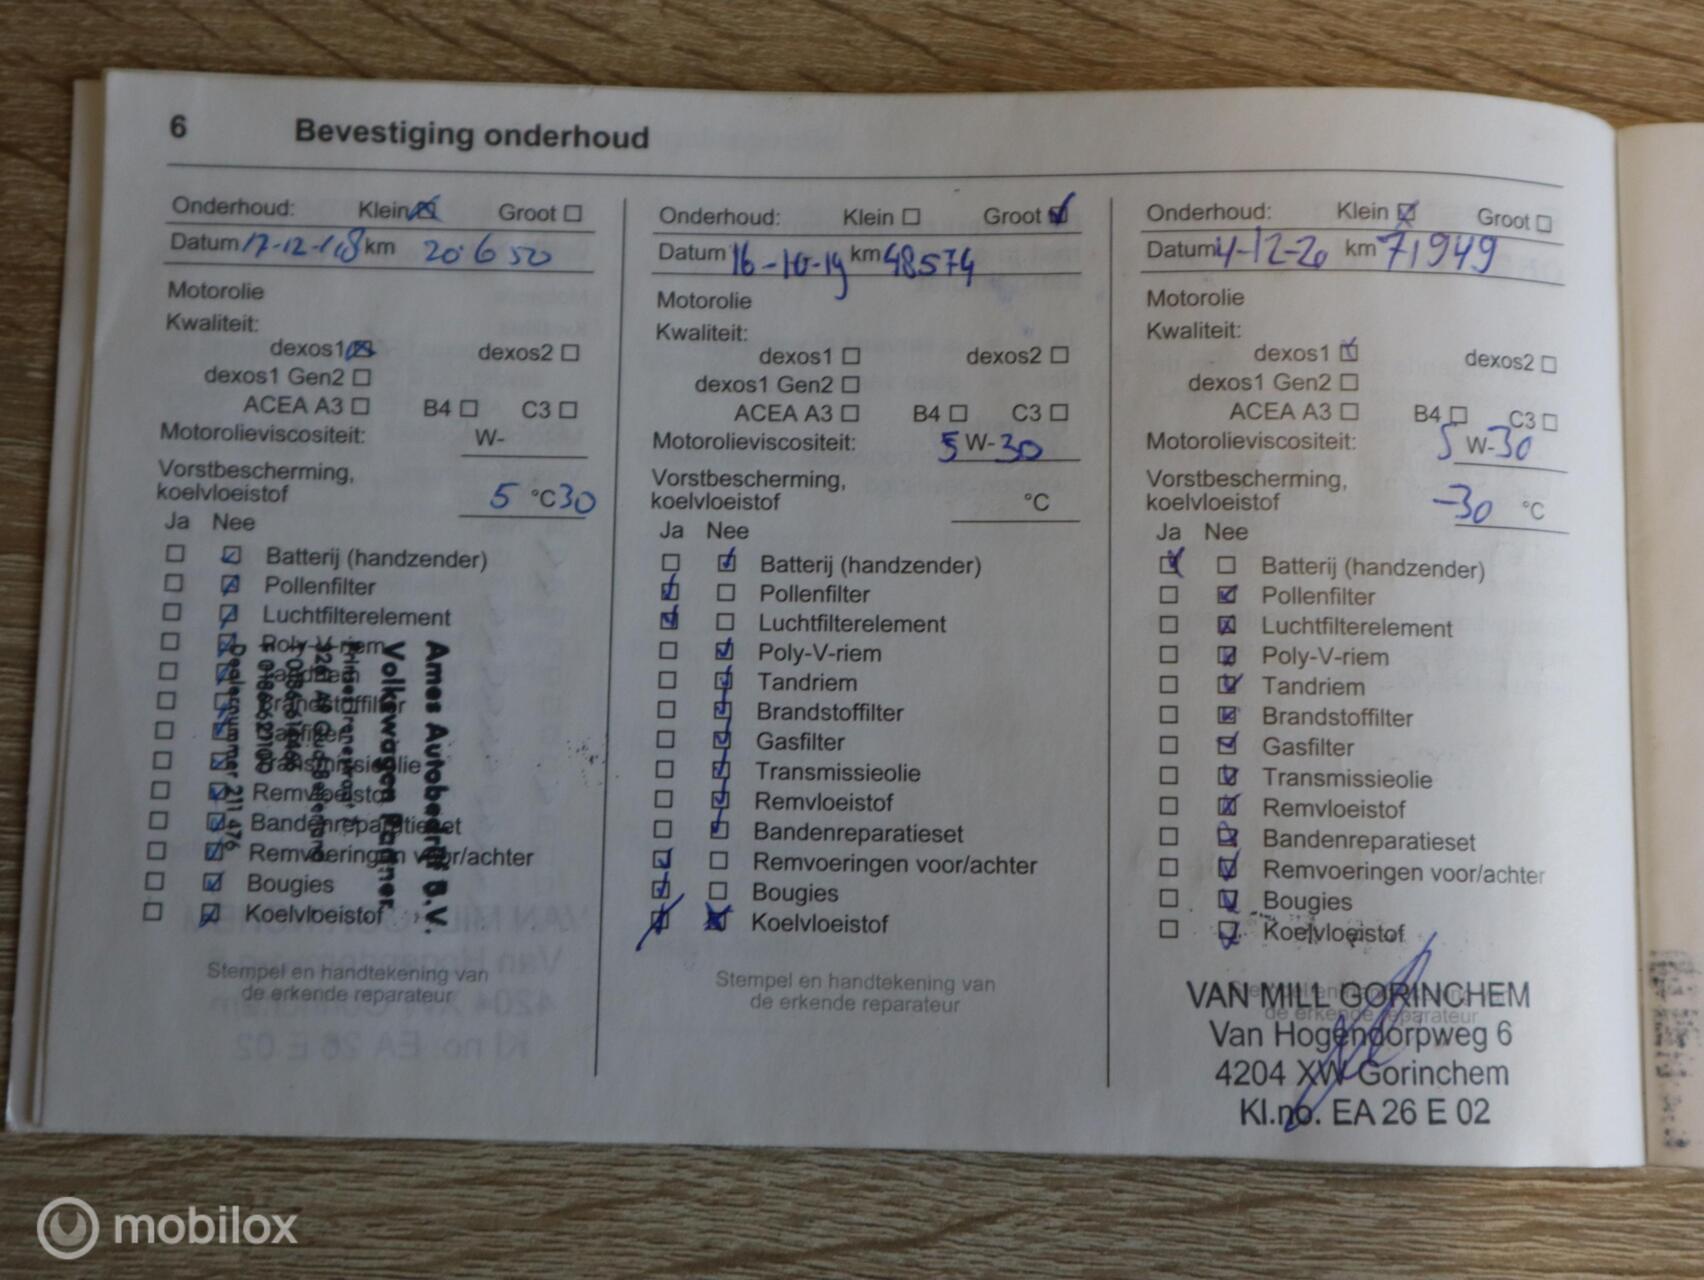 6 Bevestiging onderhoud
Onderhoud: Klein Groot
Datum 17-12-18 km 20.650
Motorolie
Kwaliteit:
dexos1 dexos2
dexos1 Gen2
ACEA A3 B4 C3
Motorolieviscositeit: W-
Vorstbescherming,
koelvloeistof 5 °C 30
Ja Nee
Batterij (handzender)
Pollenfilter
Luchtfilterelement
Poly-V-riem
Tandriem
Brandstoffilter
Gasfilter
Transmissieolie
Remvloeistof
Bandenreparatieset
Remvoeringen voor/achter
Bougies
Koelvloeistof
Ames Autobedrijf B.V.
Volkswagen Partner
Dealernummer 211476
Stempel en handtekening van
de erkende reparateur
Onderhoud: Klein Groot
Datum 16-10-19 km 48574
Motorolie
Kwaliteit:
dexos1 dexos2
dexos1 Gen2
ACEA A3 B4 C3
Motorolieviscositeit: 5 W-30
Vorstbescherming,
koelvloeistof °C
Ja Nee
Batterij (handzender)
Pollenfilter
Luchtfilterelement
Poly-V-riem
Tandriem
Brandstoffilter
Gasfilter
Transmissieolie
Remvloeistof
Bandenreparatieset
Remvoeringen voor/achter
Bougies
Koelvloeistof
Stempel en handtekening van
de erkende reparateur
Onderhoud: Klein Groot
Datum 4-12-20 km 71949
Motorolie
Kwaliteit:
dexos1 dexos2
dexos1 Gen2
ACEA A3 B4 C3
Motorolieviscositeit: 5 W-30
Vorstbescherming,
koelvloeistof -30 °C
Ja Nee
Batterij (handzender)
Pollenfilter
Luchtfilterelement
Poly-V-riem
Tandriem
Brandstoffilter
Gasfilter
Transmissieolie
Remvloeistof
Bandenreparatieset
Remvoeringen voor/achter
Bougies
Koelvloeistof
Stempel en handtekening van
de erkende reparateur
VAN MILL GORINCHEM
Van Hogendorpweg 6
4204 XW Gorinchem
Kl.no. EA 26 E 02
mobilox